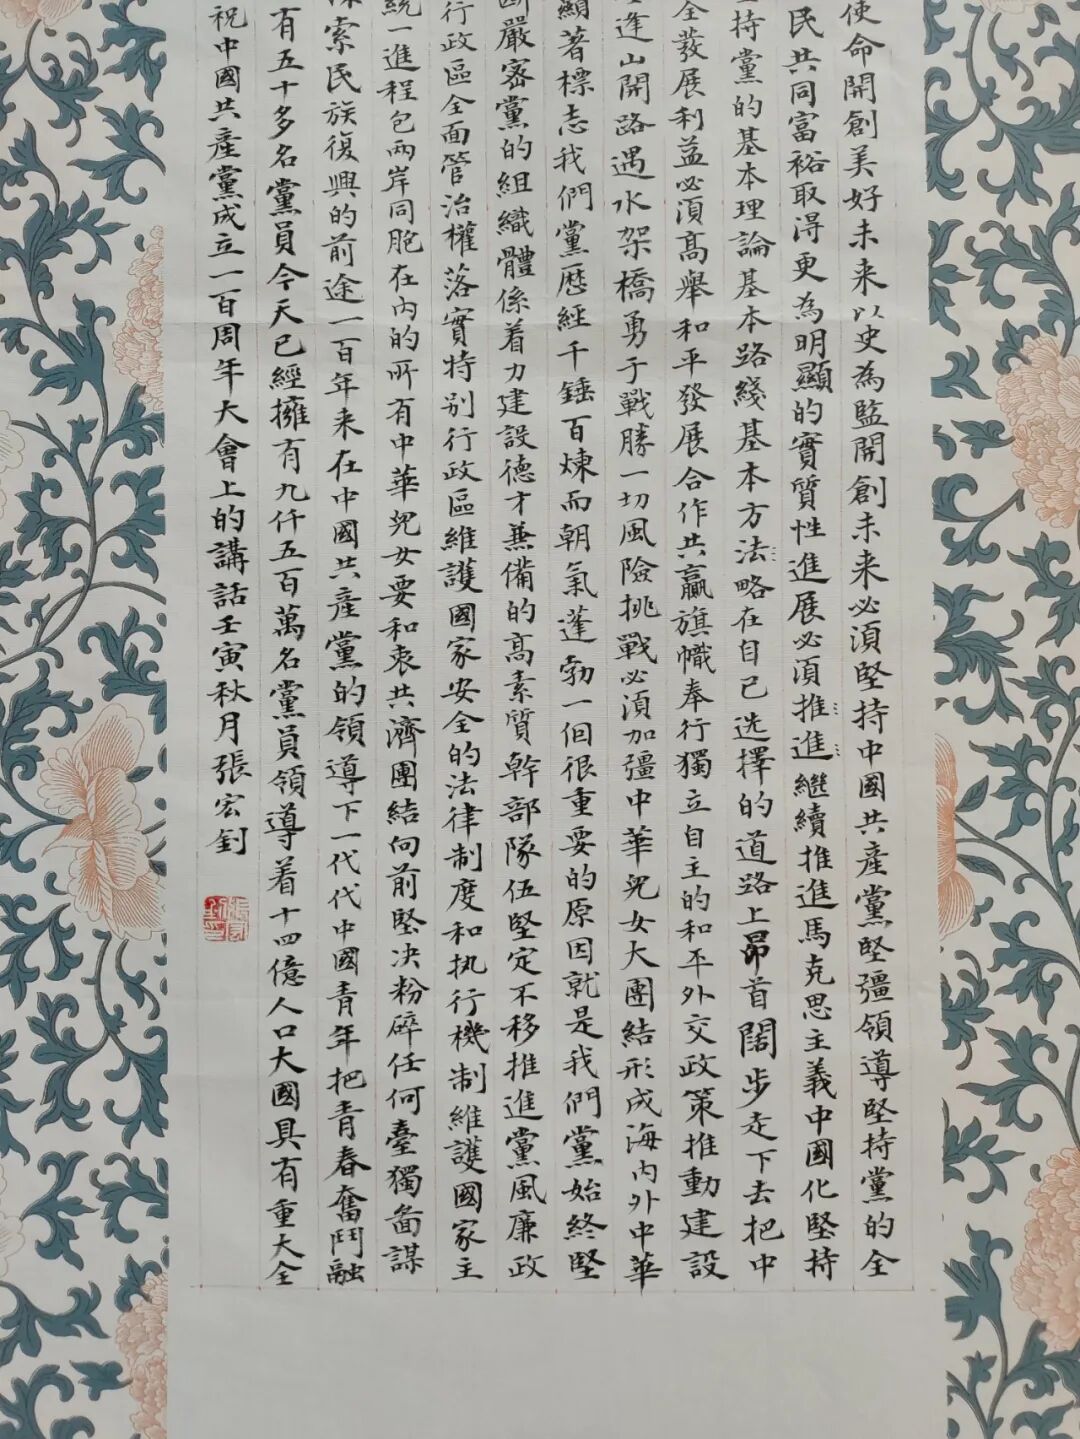 使命開創美好未来以史為監開創未来必須堅持中國共產黨堅彊領導堅持黨的全
民共同富裕取得更為明顯的實質性進展必須推進繼續推進馬克思主義中國化堅持
持黨的基本理論基本路綫基本方法略在自己选擇的道路上昴首闊步走下去把中
全發展利益必須高舉和平發展合作共贏旗幟奉行獨立自主的和平外交政策推動建設
逢山開路遇水架橋勇于戰勝一切風險挑戰必須加彊中華兒女大團結形成海内外中華
顯著標志我們黨歷經千錘百煉而朝氣蓬勃一個很重要的原因就是我們黨始終堅
嚴密黨的組織體係着力建設德才兼備的高素質幹部隊伍堅定不移推進黨風廉政
行政區全面管治權落實特别行政區維護國家安全的法律制度和执行機制維護國家主
統一進程包两岸同胞在内的所有中華兒女要和衷共濟團結向前堅决粉碎任何臺獨啚謀
索民族復興的前途一百年来在中國共產黨的領導下一代代中國青年把青春奮鬥融
有五十多名黨員今天已經擁有九仟五百萬名黨員領導着十四億人口大國具有重大全
祝中國共產黨成立一百周年大會上的講話壬寅秋月張宏釗